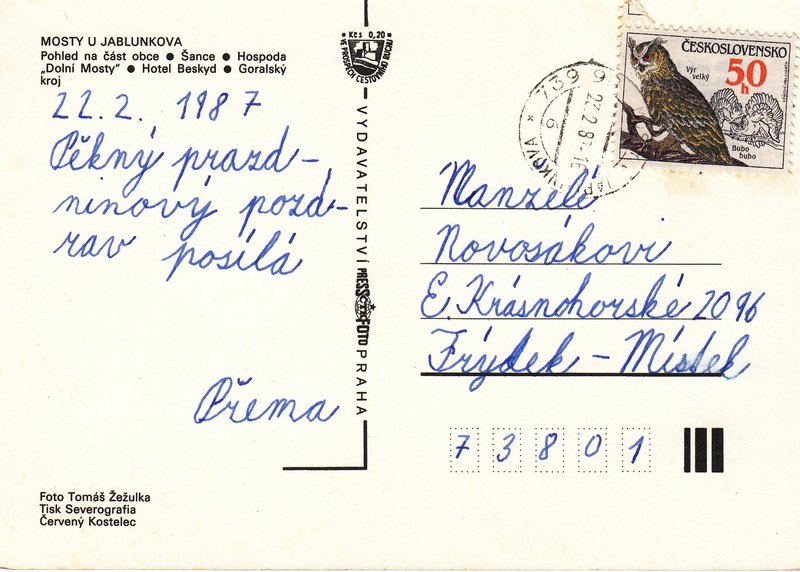 MOSTY U JABLUNKOVA
Pohled na část obce ● Šance ● Hospoda
„Dolní Mosty" ● Hotel Beskyd ● Goralský
kroj
22.2. 1987
Pěkný prazd-
ninový pozd-
rav posílá
Přema
Foto Tomáš Žežulka
Tisk Severografia
Červený Kostelec
Kčs 0,20
VE PROSPĚCH CESTOVNÍHO RUCHU
VYDAVATELSTVÍ PRESSFOTO PRAHA
ČTK
739 9
22.2.87-16
6
ČESKOSLOVENSKO
50 h
Výr
velký
Bubo
bubo
Manzelé
Novosákovi
E. Krásnohorské 2096
Frýdek - Místek
73801